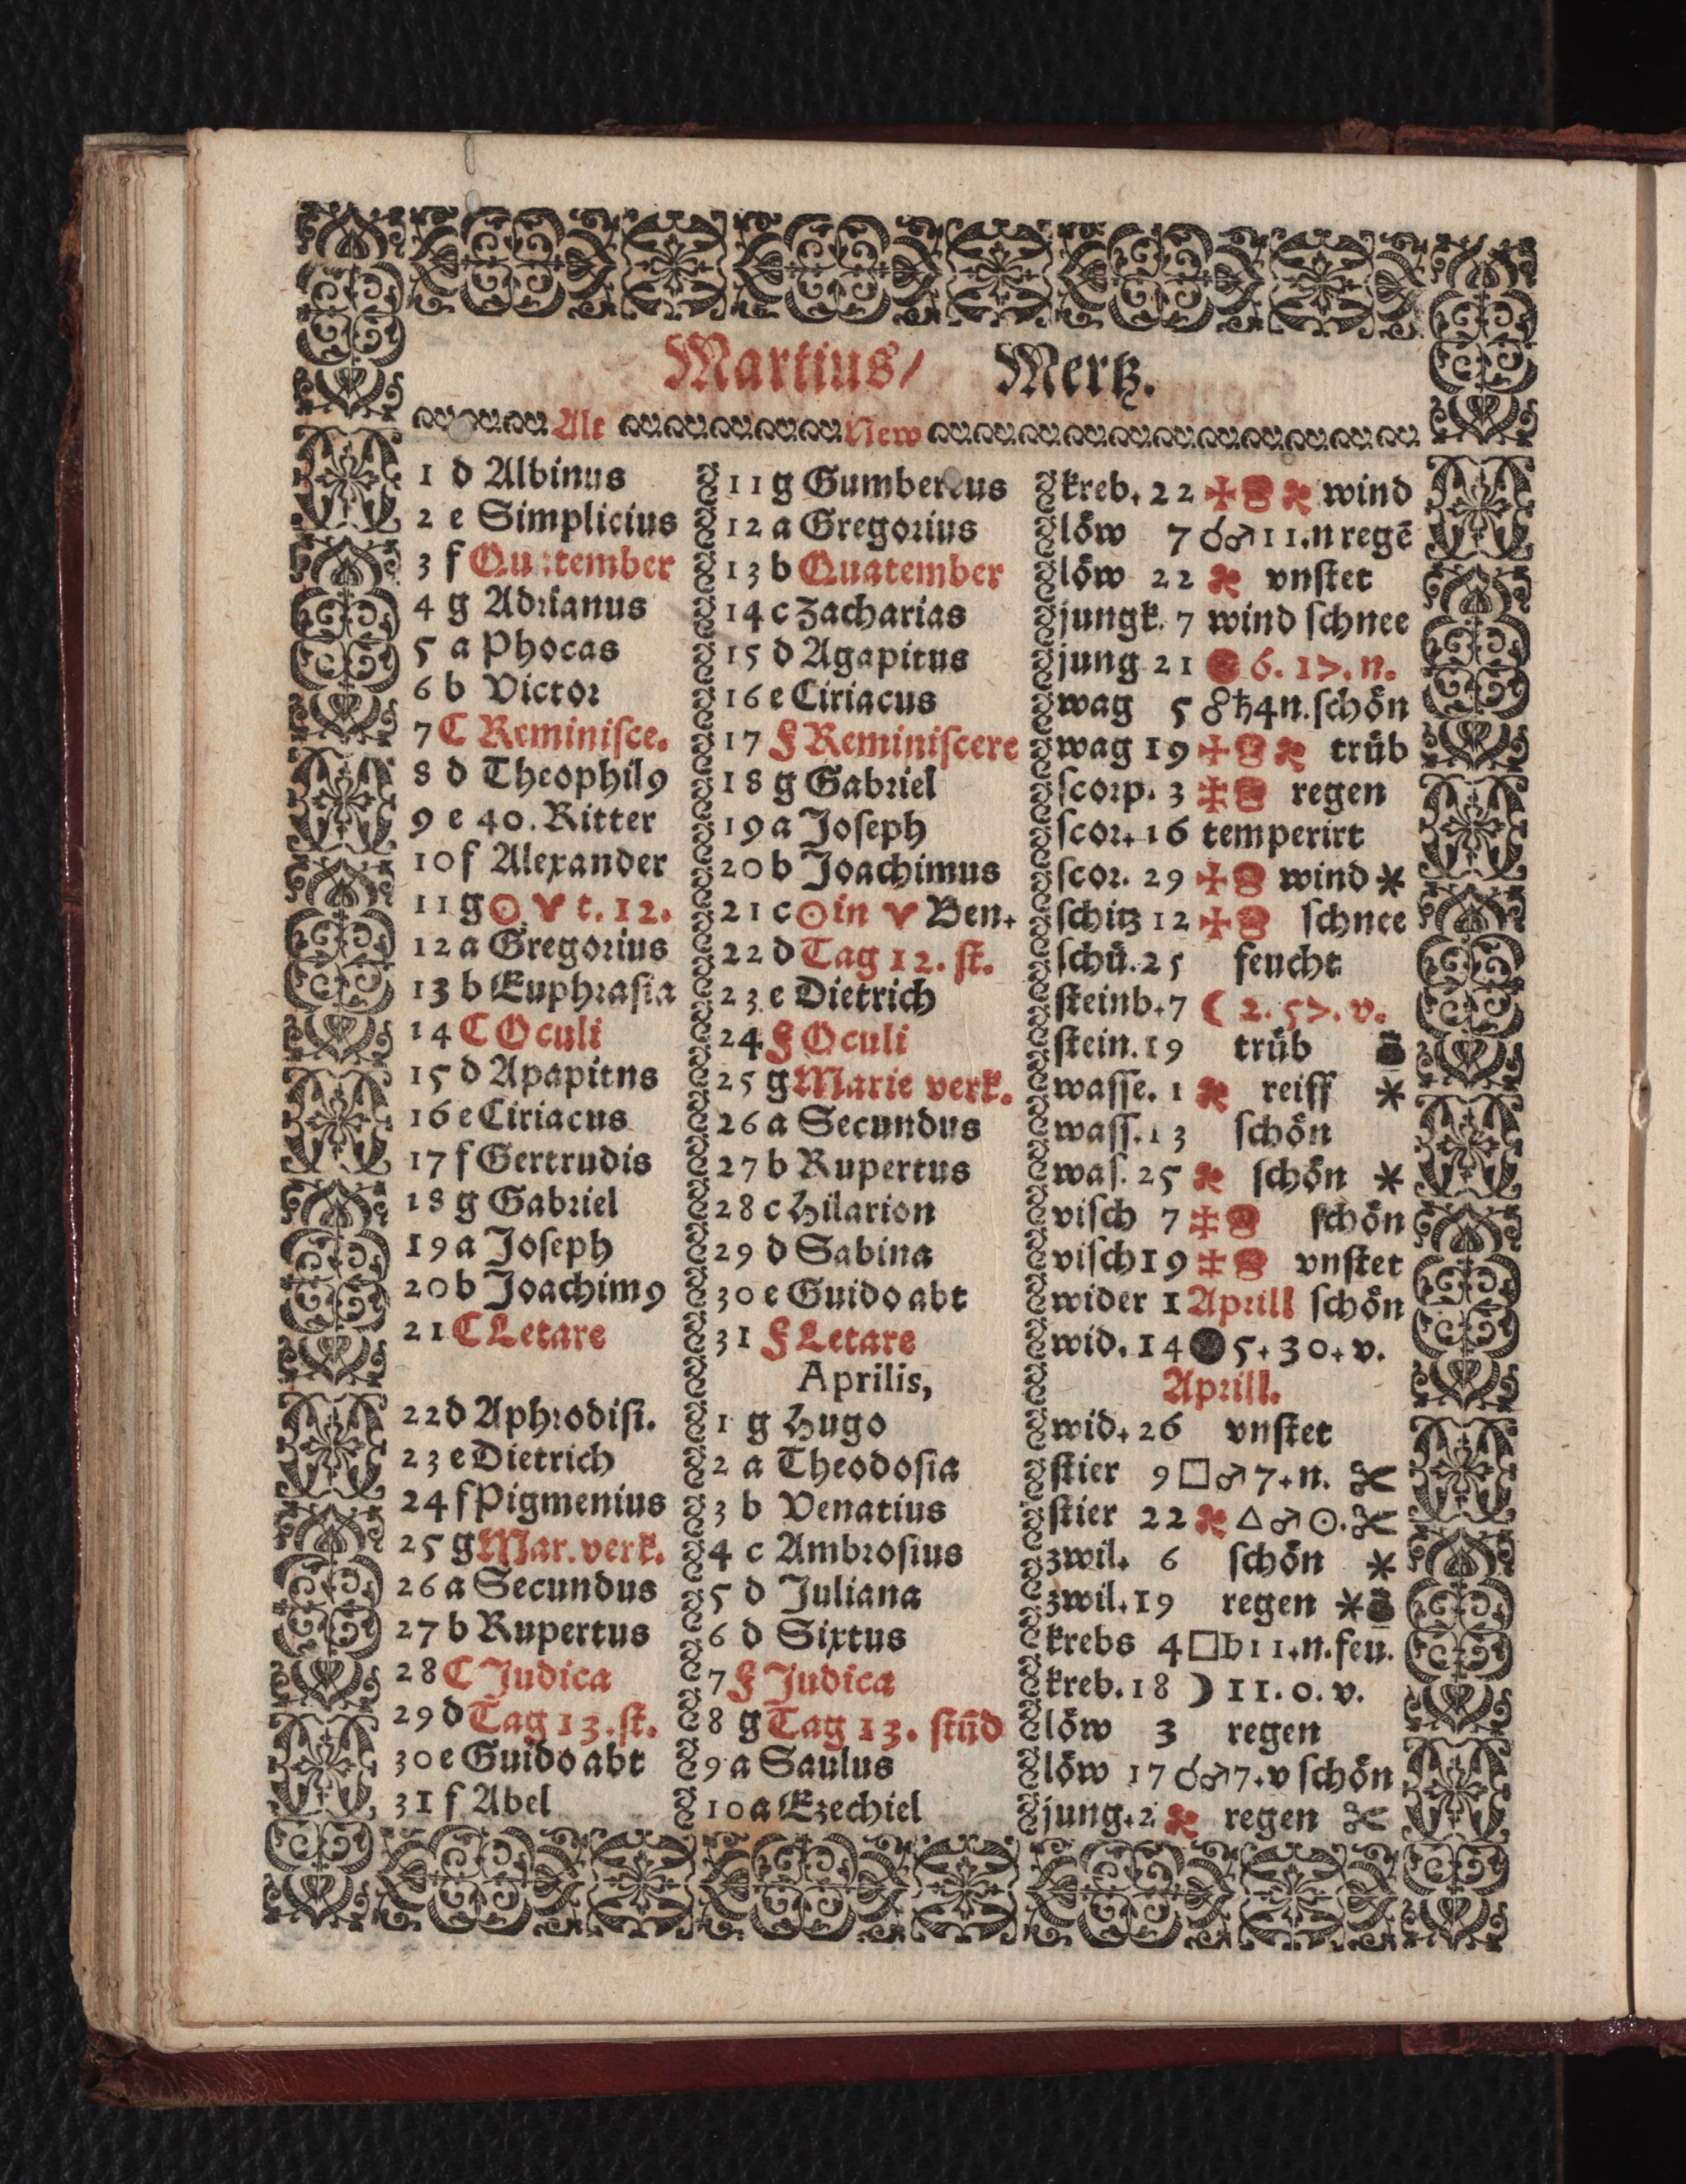 Martius/ Mertz.
Alt New
1 d Albinus 11 g Gumbertus kreb. 22 wind
2 e Simplicius 12 a Gregorius löw 7 ☌♂ 11.n regē
3 f Quatember 13 b Quatember löw 22 vnſtet
4 g Adrianus 14 c Zacharias jungk. 7 wind ſchnee
5 a Phocas 15 d Agapitus jung 21 6. 1>. n.
6 b Victor 16 e Ciriacus wag 5 ☍♄ 4n. ſchön
7 C Reminiſce. 17 F Reminiſcere wag 19 trüb
8 d Theophil9 18 g Gabriel ſcorp. 3 regen
9 e 40. Ritter 19 a Joſeph ſcor. 16 temperirt
10 f Alexander 20 b Joachimus ſcor. 29 wind *
11 g ☉ ♈ t. 12. 21 c ☉ in ♈ Ben. ſchitz 12 ſchnee
12 a Gregorius 22 d Tag 12. ſt. ſchü. 25 feucht
13 b Euphraſia 23 e Dietrich ſteinb. 7 ☾ 2. 5>. v.
14 C Oculi 24 F Oculi ſtein. 19 trüb
15 d Apapitns 25 g Marie verk. waſſe. 1 reiff *
16 e Ciriacus 26 a Secundus waſſ. 13 ſchön
17 f Gertrudis 27 b Rupertus waſ. 25 ſchön *
18 g Gabriel 28 c Hilarion viſch 7 ſchön
19 a Joſeph 29 d Sabina viſch 19 vnſtet
20 b Joachim9 30 e Guido abt wider 1 Aprill ſchön
21 C Letare 31 F Letare wid. 14 ● 5. 30. v.
Aprilis, Aprill.
22 d Aphrodiſi. 1 g Hugo wid. 26 vnſtet
23 e Dietrich 2 a Theodoſia ſtier 9 □♂ 7. n.
24 f Pigmenius 3 b Venatius ſtier 22 △♂☉.
25 g Mar. verk. 4 c Ambroſius zwil. 6 ſchön *
26 a Secundus 5 d Juliana zwil. 19 regen *
27 b Rupertus 6 d Sixtus krebs 4 □♄ 11. n. feu.
28 C Judica 7 F Judica kreb. 18 ☽ 11. 0. v.
29 d Tag 13. ſt. 8 g Tag 13. ſtūd löw 3 regen
30 e Guido abt 9 a Saulus löw 17 ☌♂ 7. v ſchön
31 f Abel 10 a Ezechiel jung. 2 regen